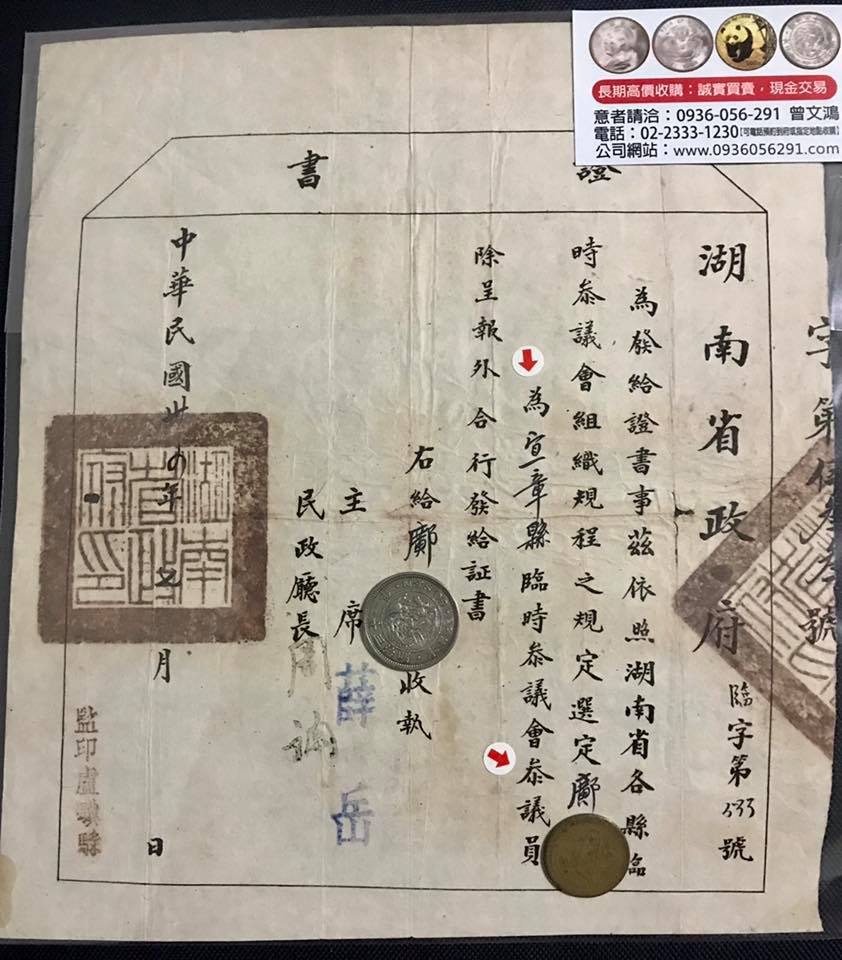 長期高價收購：誠實買賣，現金交易
意者請洽：0936-056-291 曾文鴻
電話：02-2333-1230【可電話預約到府或指定地點收購】
公司網站：www.0936056291.com
證書
字第伍叁叁號
湖南省政府
臨字第533號
為發給證書事茲依照湖南省各縣臨
時叅議會組織規程之規定選定鄺
為宜章縣臨時叅議會叅議員
除呈報外合行發給証書
右給鄺 收執
主席 薛岳
民政廳長 周
中華民國卅 年 月 日
湖南省政府印
監印盧